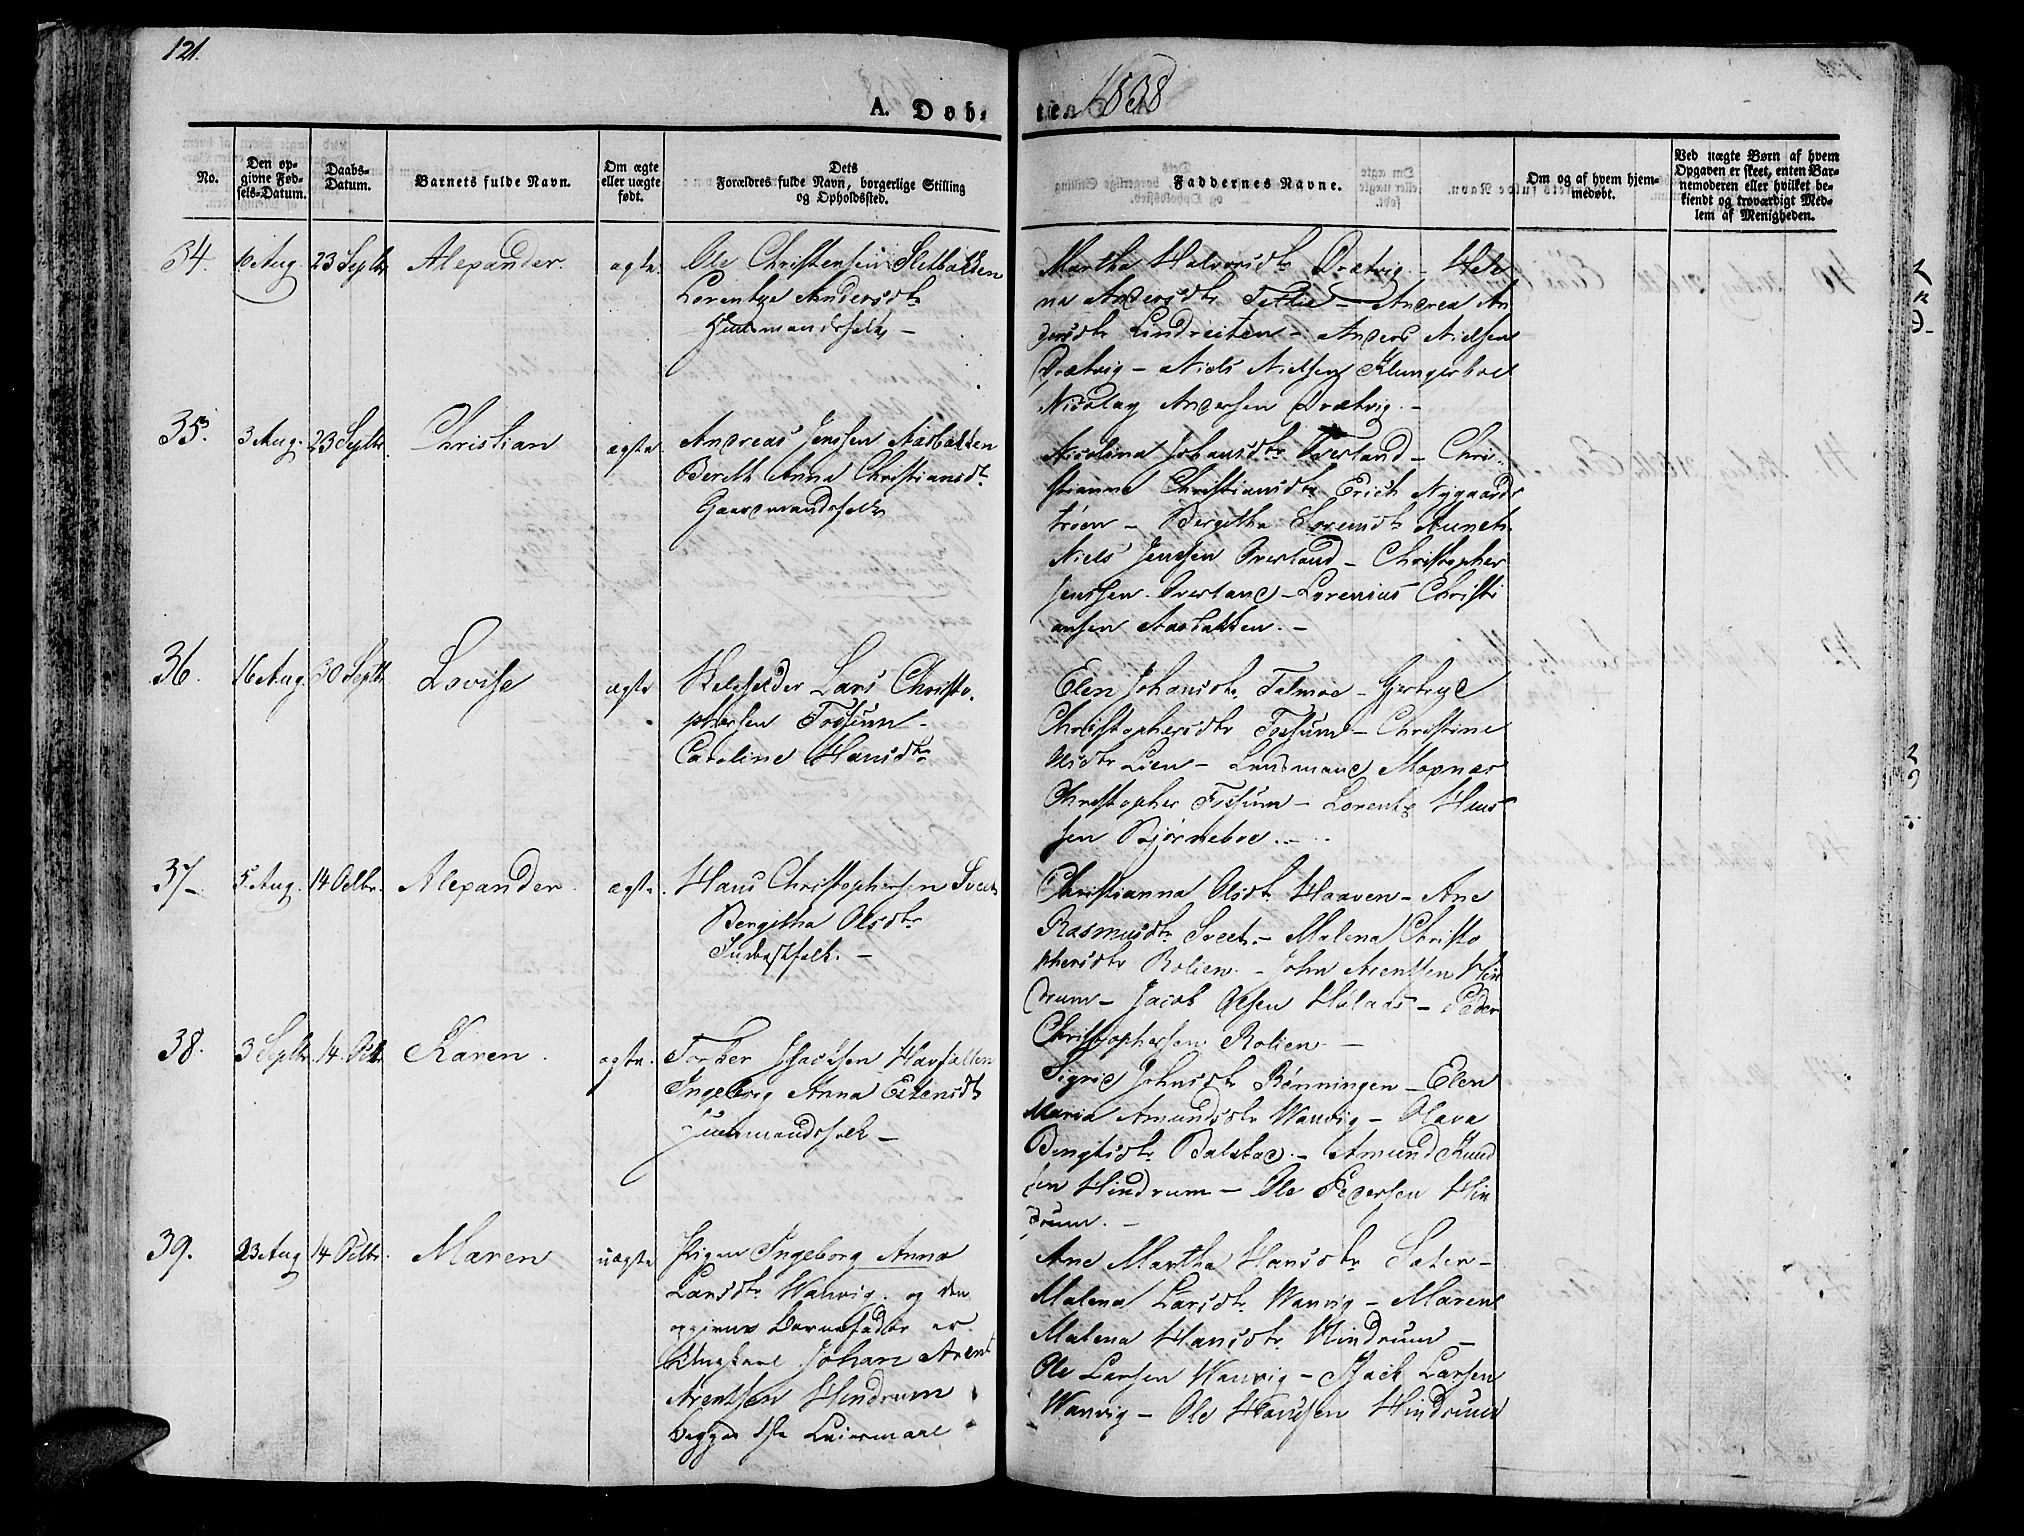 121.
1838
A. Døb-
te.
No.
Den op-
givne Fød-
sels-Datum.
Daabs-
Datum.
Barnets fulde Navn.
Om ægte
eller uægte
født.
Dets
Forældres fulde Navn, borgerlige Stilling
og Opholdssted.
Faddernes Navne.
Om og af hvem hjem-
medøbt.
Ved uægte Børn af hvem
Opgaven er skeet, enten Bar-
nemoderen eller hvilket be-
kiendt og troværdigt Med-
lem af Menigheden.
34. Aug. 23 Septbr. Alexander. ægte.
Ole Christensen Sletbakken
Lorentze Andersdtr
Huusmandsfolk –
Martha Halvorsdtr Drætvig – Hele
na Andersdtr Tettlie – Andrea An
dersdtr Lindreiten – Anders Nielsen
Drætvig – Niels Nielsen Klungerboe
Nicolay Andersen Drætvig. –
35. 3 Aug. 23 Septbr. Christian ægte.
Andreas Jenssen Aasbakken
Bereth Anna Christiansdtr
Gaardmandsfolk
Nicolina Johansdtr Overland – Chri-
stianne Christiansdtr Erich Nygaards
trøen – Bergitha Sorensdtr Auneth
Niels Jenssen Overland – Christopher
Jenssen Overland – Lorenius Christi
ansen Aasbakken. –
36. 16 Aug. 30 Septbr. Lovise ægte
Lars Christo-
phersen Fossum –
Caroline Hansdtr
Elen Johansdtr Talmoe – Gjertrud
Christophersdtr Fossum – Christine
Lien – Lensmand
Christopher Fossum – Lorents Hans
sen Bjørneboe. –
37 – 5 Aug. 14 Octbr. Alexander. ægte.
Hans Christophersen Sveet
Bergitha Olsdtr
Inderstfolk. –
Christianna Olsdtr Haaven – Ane
Rasmusdtr Sveet. – Malena Christo
phersdtr Rolien. – John Arentsen Hin
drum – Jacob Olsen Hülaas – Peder
Christophersen Rolien –
38. 3 Septbr. 14 Oct. Karen. ægte.
Torber Isachsen Havfallen
Ingeborg Anna Estensdtr
Huusmandsfolk –
Sigrid Johnsdtr Rønningen – Elen
Maria Amundsdtr Wanvig – Olava
Bengtsdtr Balstad. – Amund Knud
sen Hindrum – Ole Pedersen Hin
drum. –
39. 23 Aug 14 Octbr. Maren uægte
Pigen Ingeborg Anna
Larsdtr Wanvig. og den
opgivne Barnefader er
Ungkarl Johan Arent
Arentsen Hindrum
begges 1ste Leiermaal
Ane Martha Hansdtr Sæter –
Malena Larsdtr Wanvig – Maren
Malena Hansdtr Hindrum –
Ole Larsen Wanvig – Isach Larsen
Wanvig – Ole Hansen Hindrum